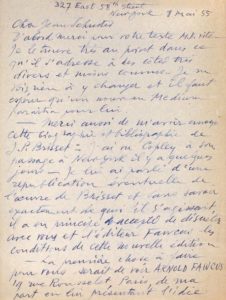 327 East 58th street
New York 8 Mai 55
Cher Jean Schuster
D'abord merci pour votre texte
Je le trouve très au point dans ce
qu'il s'adresse à des côtés très
divers et moins connus. Je ne
à y changer et il faut
espérer qu'un nouveau Medium
paraîtra
Merci aussi de m'avoir envoyé
cette biographie et bibliographie de
J.P. Brisset = J'ai vu Copley à son
passage à New York il y a quelques
jours = Je lui ai parlé d'une
republication éventuelle de
l'œuvre de Brisset et sans savoir
exactement de quoi il s'agissait,
il a accepté de discuter
avec vous et l'éditeur Fawcus les
conditions de cette nouvelle édition
La première chose à faire
pour vous serait de voir ARNOLD FAWCUS
rue Rousselet, Paris, de ma
part en lui présentant l'idée